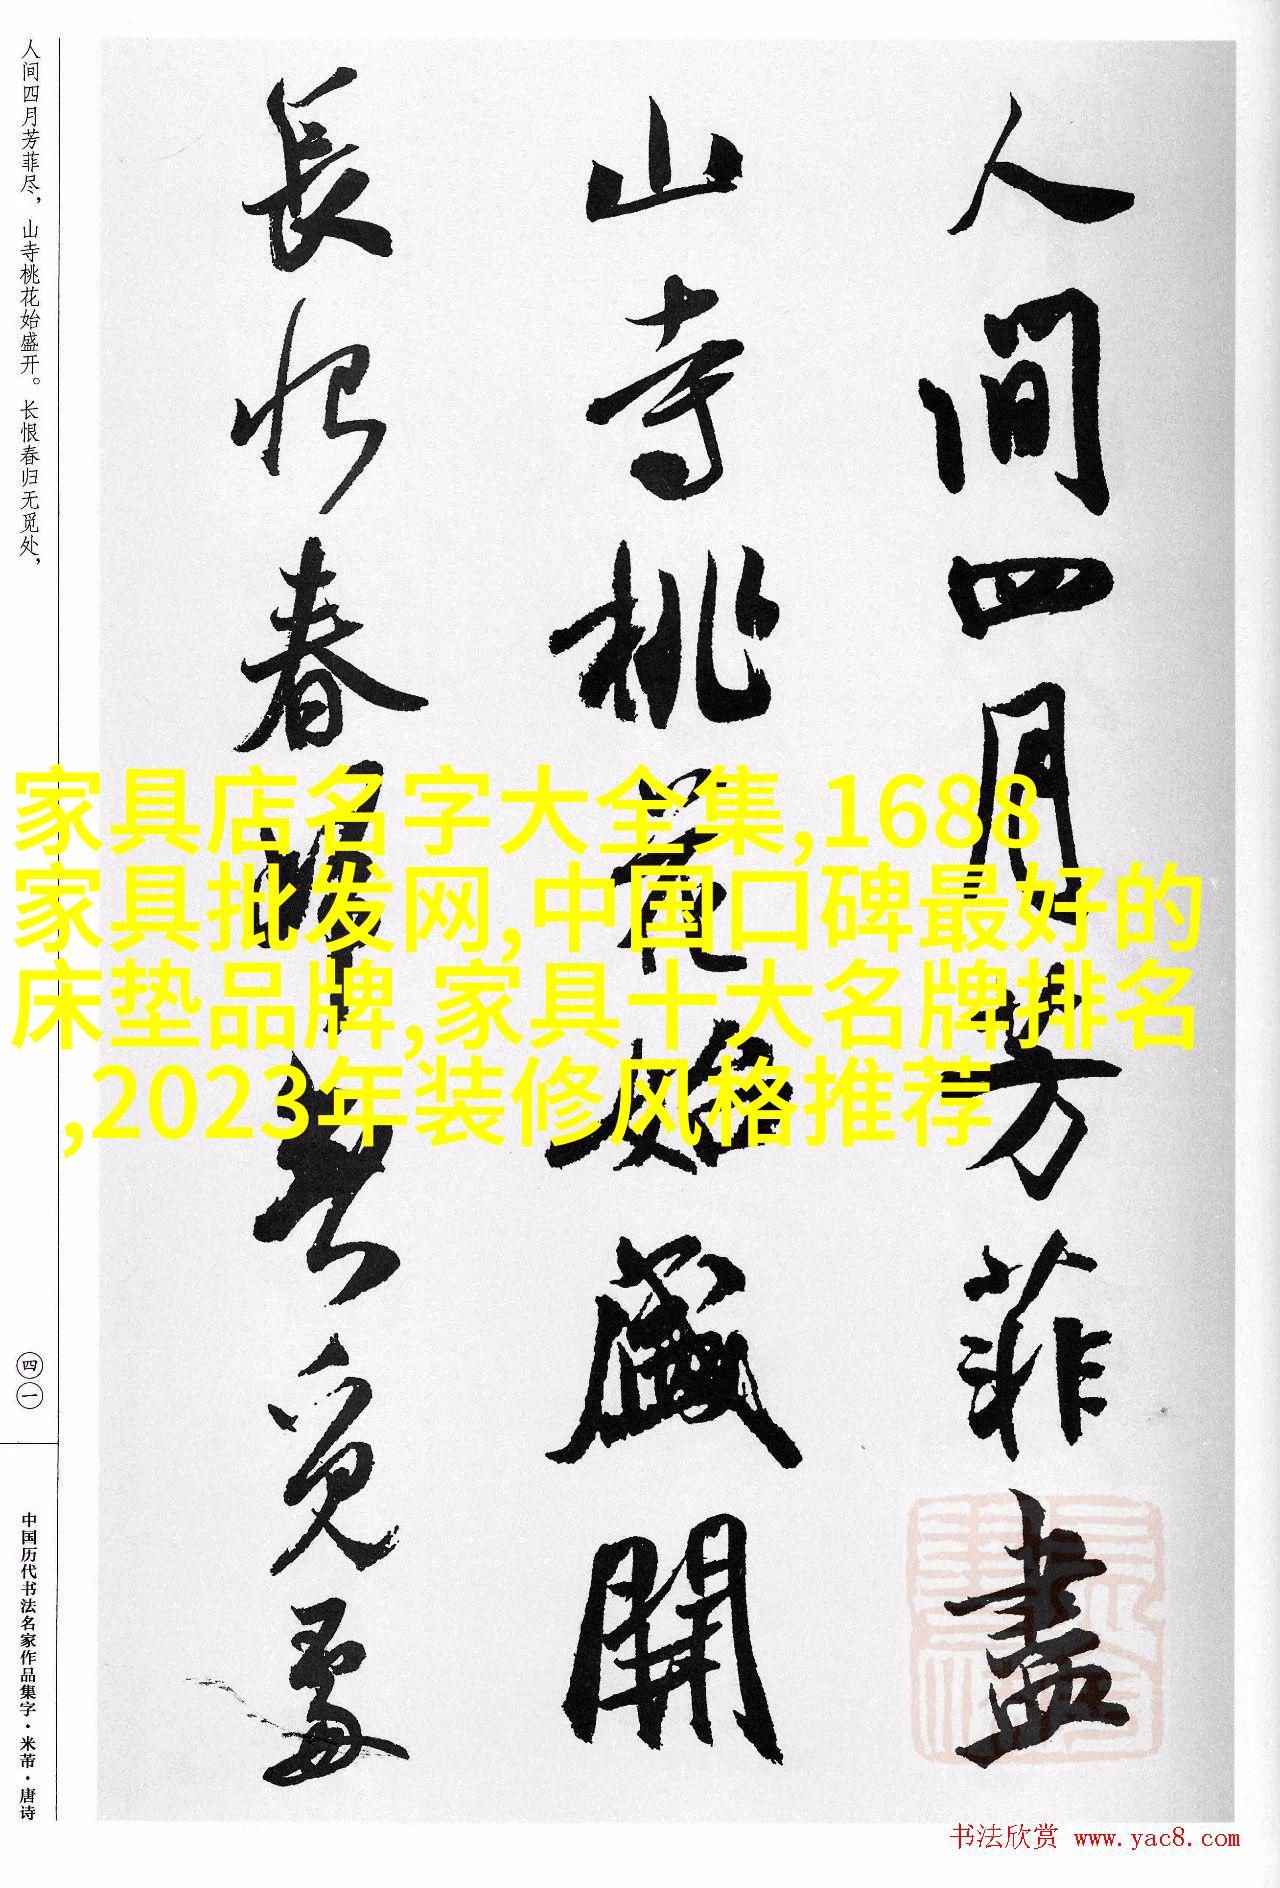 人間四月芳菲盡
山寺桃花始盛開
長恨春歸無覓處
人间四月芳菲尽，山寺桃花始盛开。长恨春归无觅处，
四一
中国历代书法名家作品集字·米芾·唐诗
家具店名字大全集,1688
家具批发网,中国口碑最好的
床垫品牌,家具十大名牌排名
,2023年装修风格推荐
书法欣赏 www.yac8.com